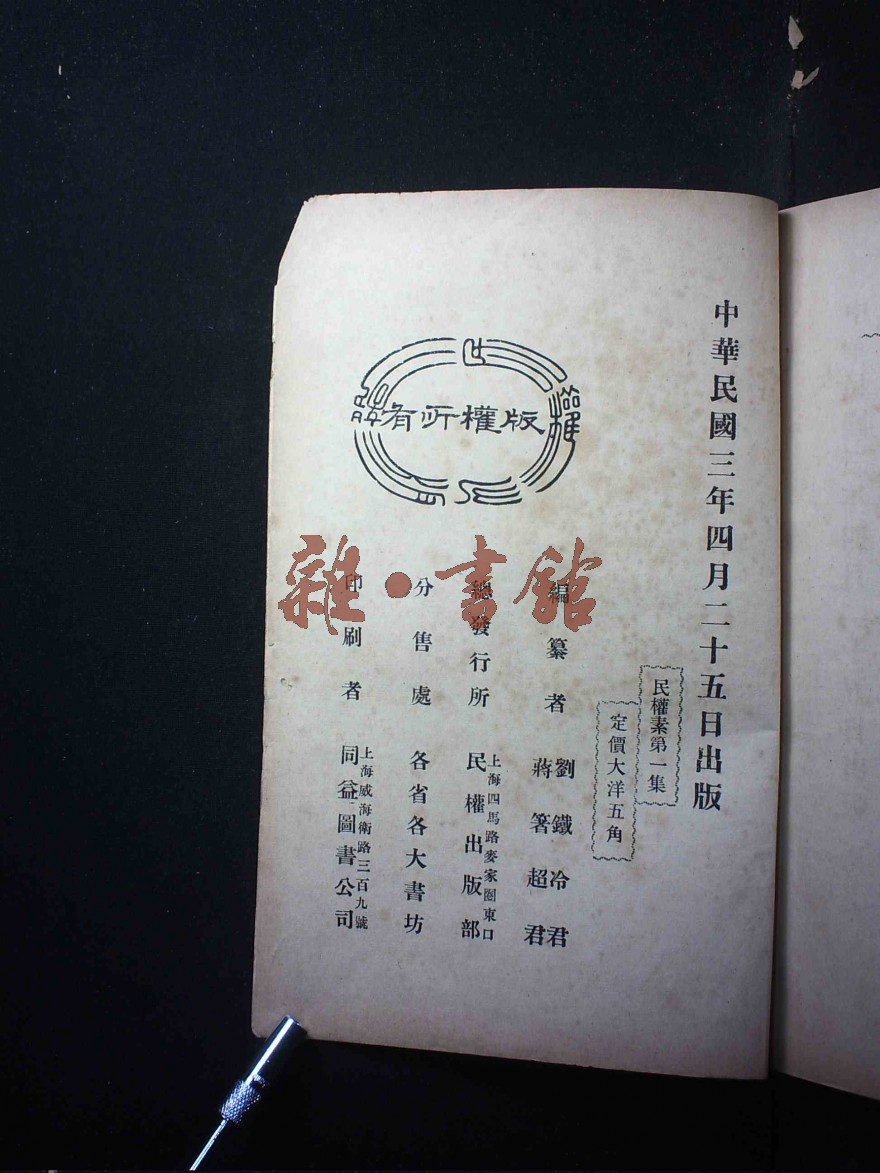 中華民國三年四月二十五日出版
民權素第一集
定價大洋五角
編纂者 劉鐵冷君
蔣箸超君
總發行所 上海四馬路麥家圈東口
民權出版部
分售處 各省各大書坊
印刷者 上海威海衛路三百九號
同益圖書公司
版權所有
雜·書館